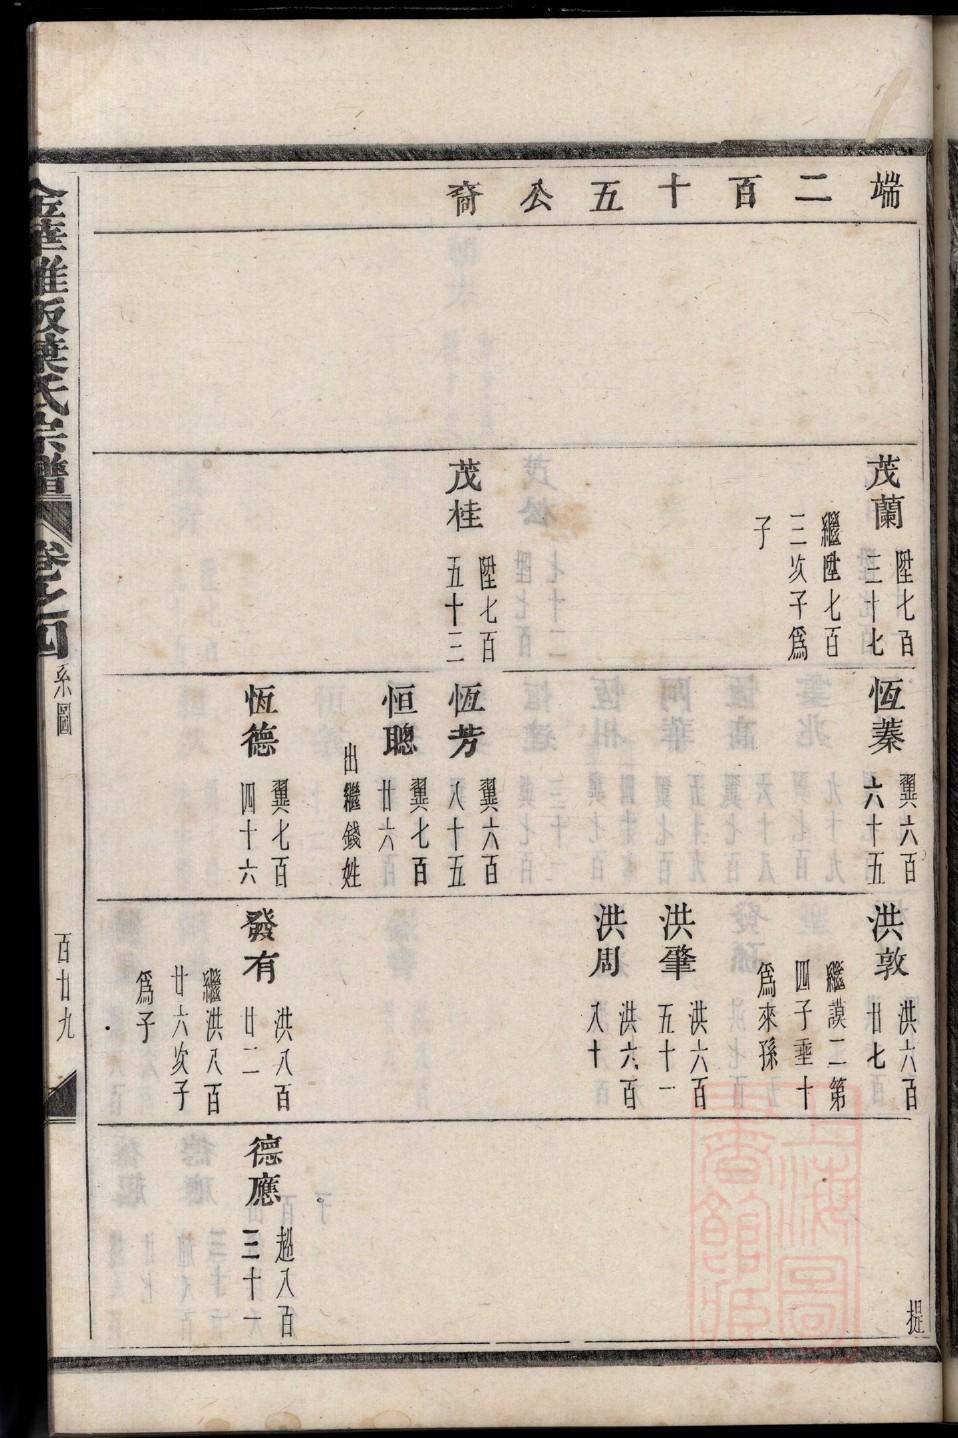 端二百十五公裔
茂蘭
陞七百
三十七
繼陞七百
三次子爲
子
茂桂
陞七百
五十三
恆蓁
翼六百
六十五
恆芳
翼六百
八十五
恒聰
翼七百
廿六
出繼錢姓
恆德
翼七百
四十六
洪敦
洪六百
廿七
繼謨二第
四子垂十
爲來孫
洪肇
洪六百
五十一
洪周
洪六百
八十
發有
洪八百
廿二
繼洪八百
廿六次子
爲子
德應
趙八百
三十一
提
金華雅畈葉氏宗譜
卷之四
系圖
百廿九
上海圖
書館藏